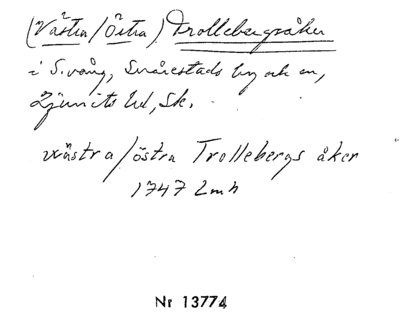 (Västra/Östra) Trollebergsåker
i S. vång, Svarestads by och sn,
Ljunits hd, Sk.
västra/östra Trollebergs åker
1747 Lmh
Nr 13774